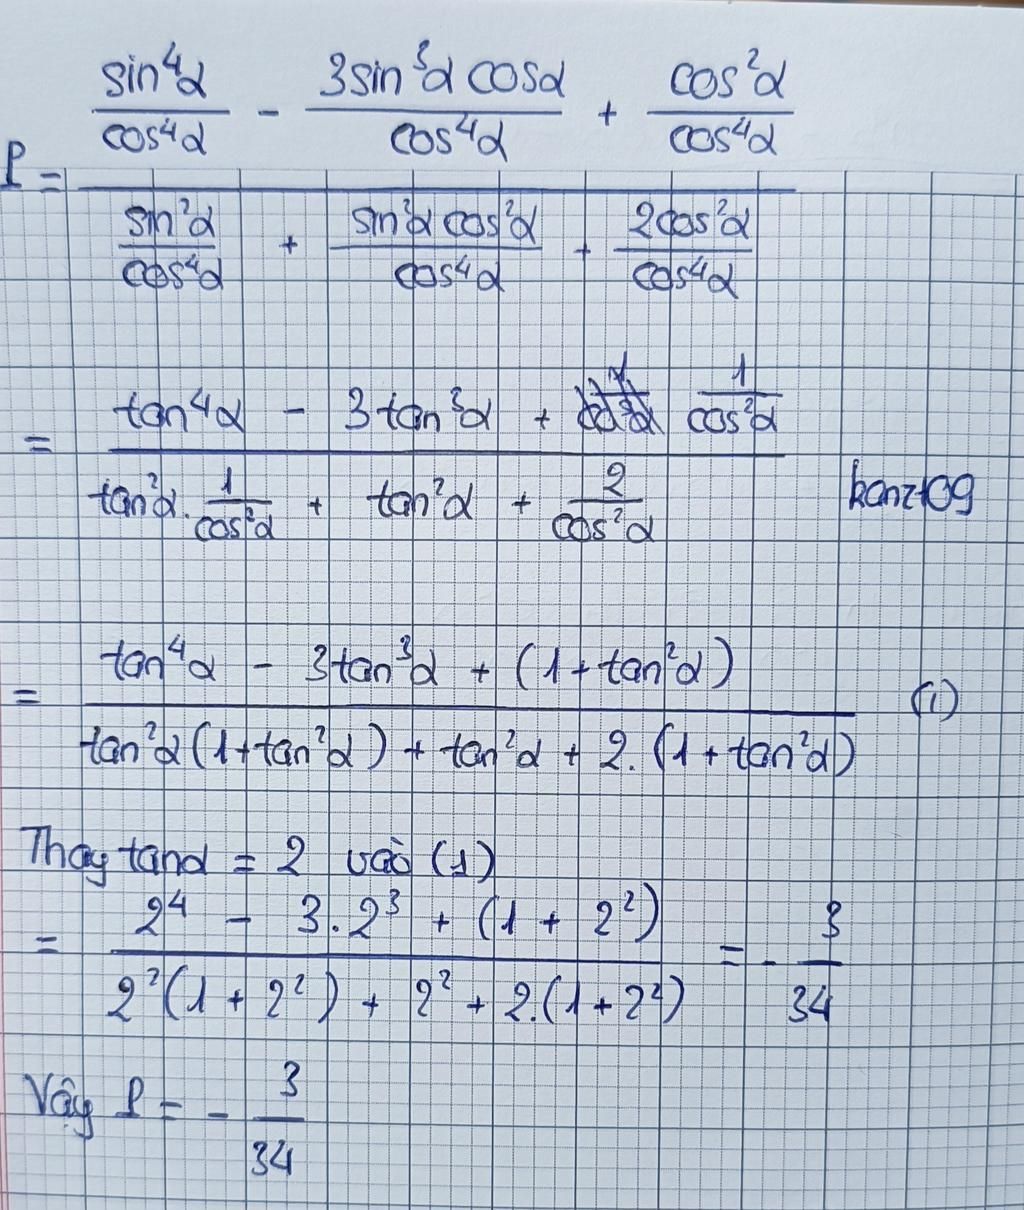 sin⁴α/cos⁴α - 3sin³α cosα/cos⁴α + cos²α/cos⁴α
P =
sin²α/cos⁴α + sin²α cos²α/cos⁴α + 2cos²α/cos⁴α
tan⁴α - 3tan³α + 1/cos²α
=
tan²α. 1/cos²α + tan²α + 2/cos²α
kanzt09
tan⁴α - 3tan³α + (1 + tan²α)
= (1)
tan²α(1+tan²α) + tan²α + 2.(1 + tan²α)
Thay tanα = 2 vào (1)
2⁴ - 3.2³ + (1 + 2²)
= = - 3/34
2²(1 + 2²) + 2² + 2.(1 + 2²)
Vậy P = - 3/34